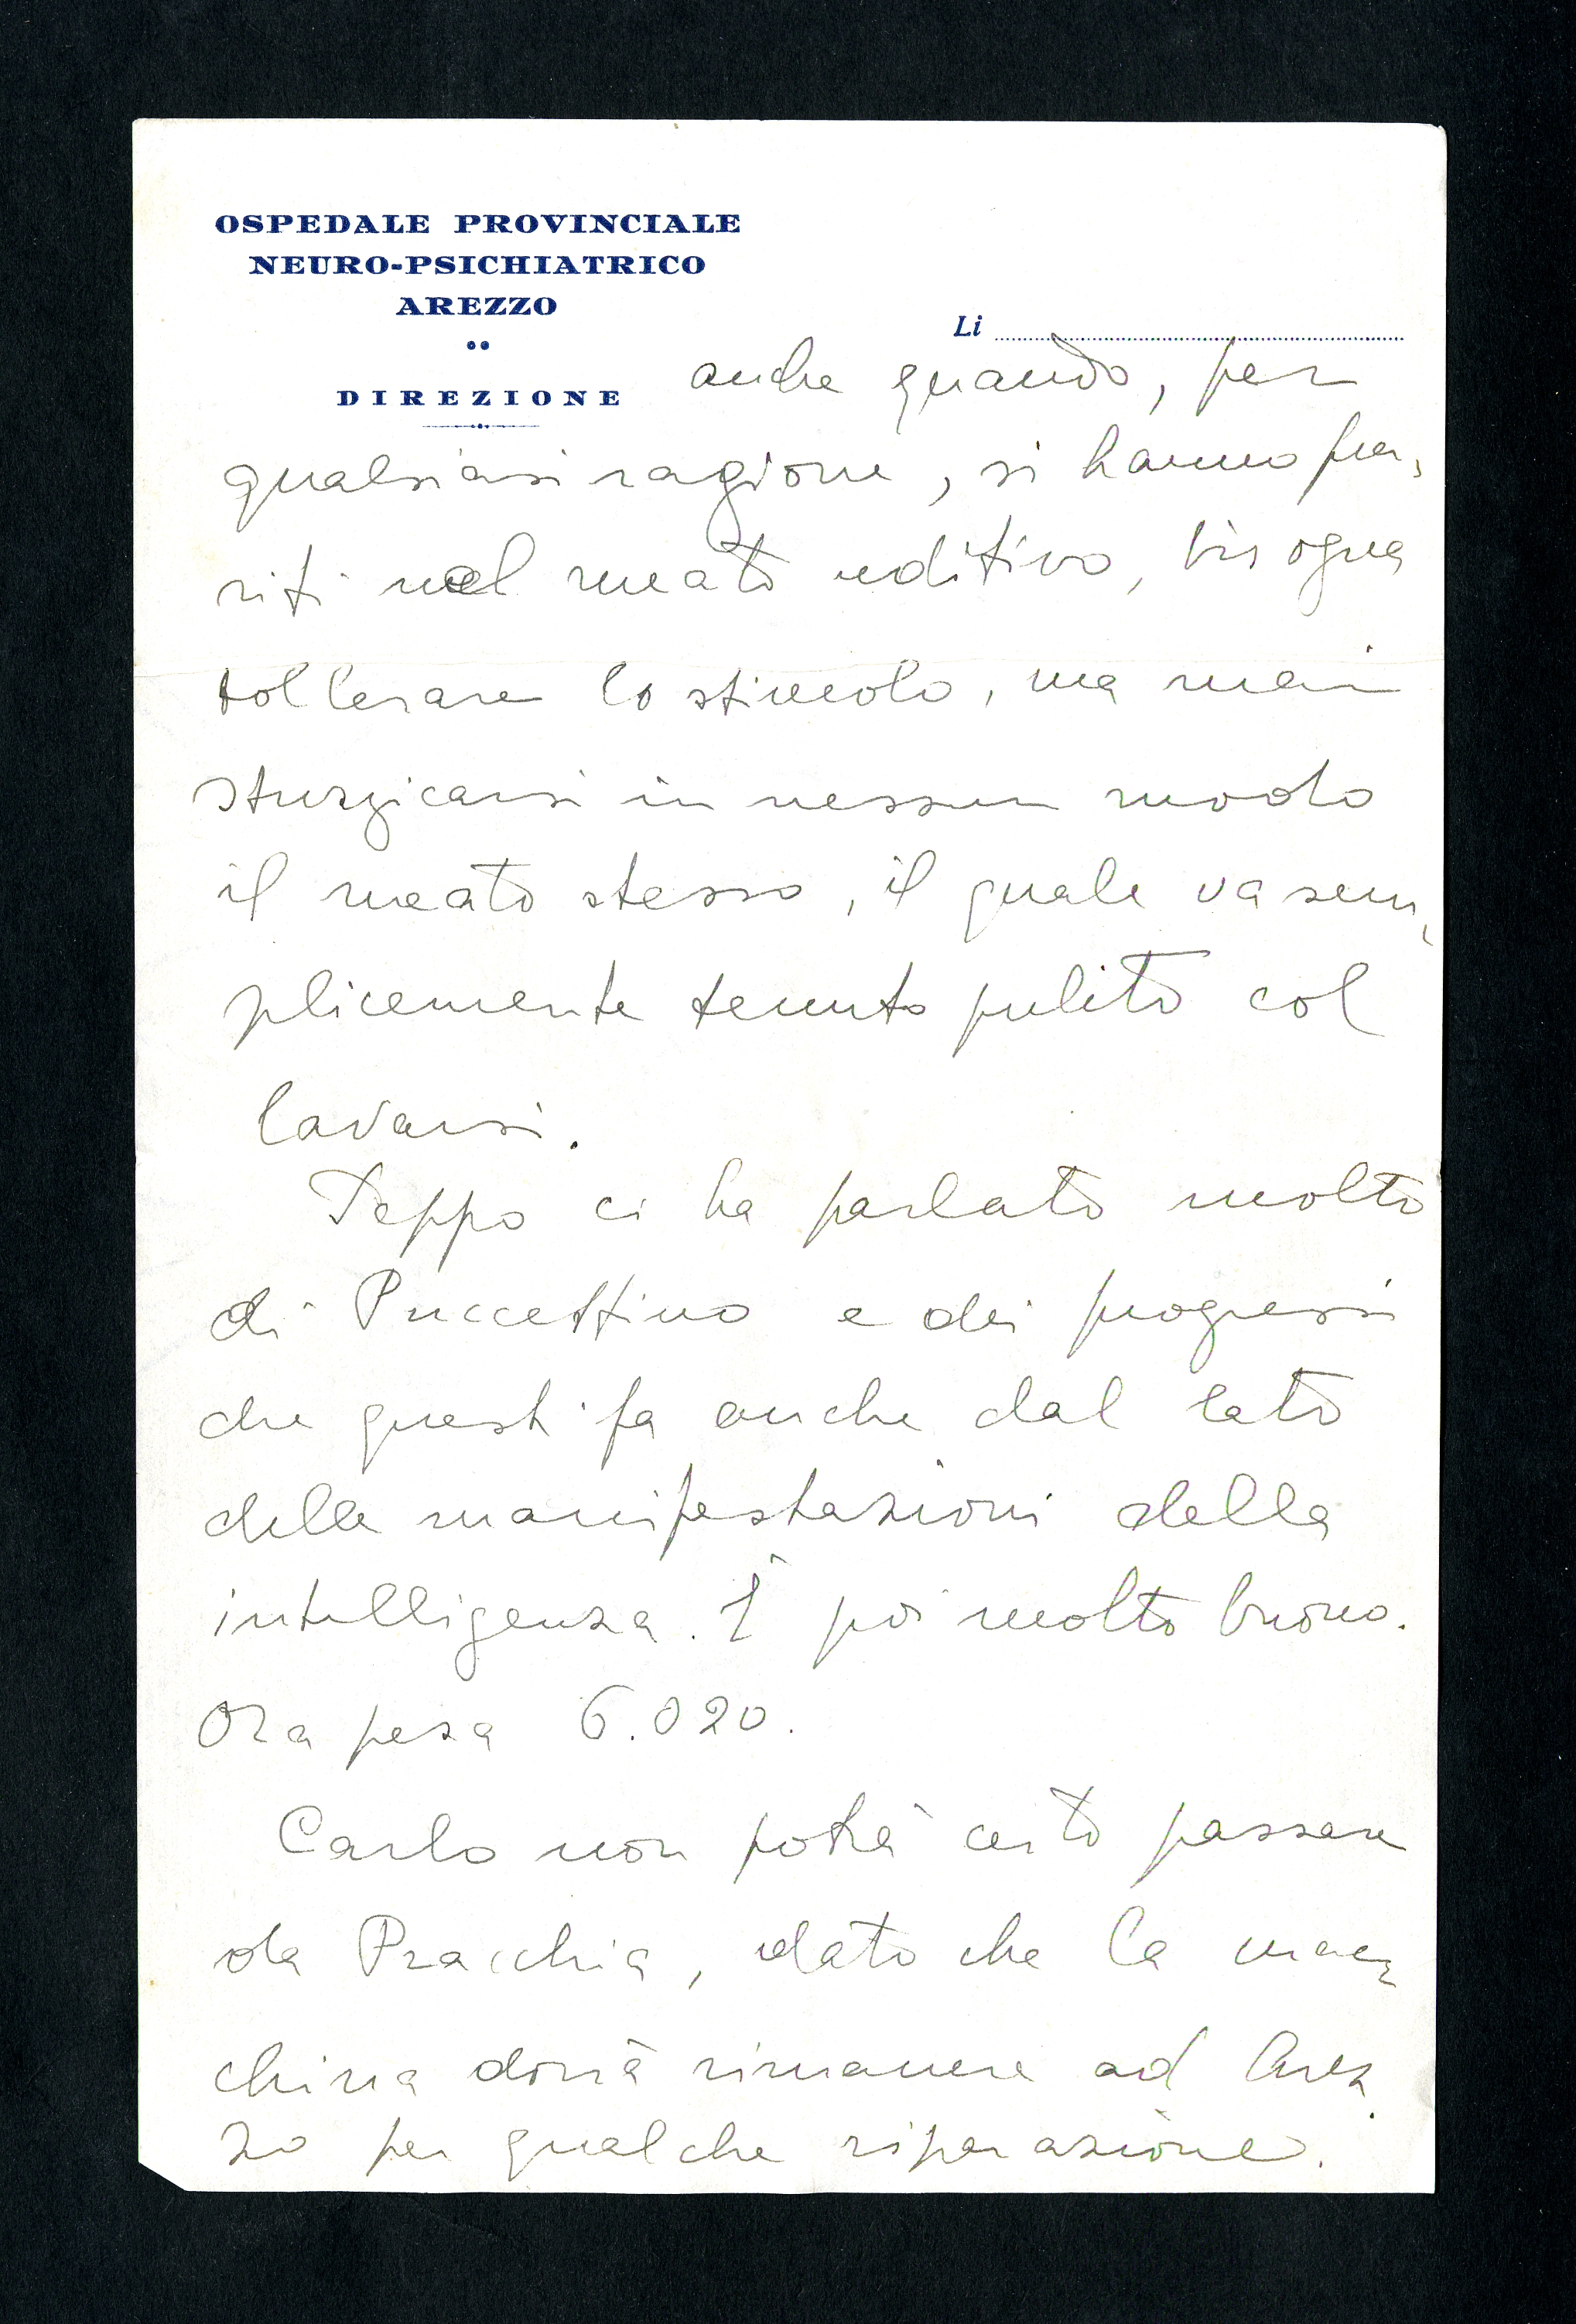 OSPEDALE PROVINCIALE
NEURO-PSICHIATRICO
AREZZO
DIREZIONE
Li
anche quando, per
qualsiasi ragione, si hanno pru,
riti nel meato uditivo, bisogna
tollerare lo stimolo, ma mai
stuzzicarsi in nessun modo
il meato stesso, il quale va sem,
plicemente tenuto pulito col
lavarsi.
Peppo ci ha parlato molto
di Puccettino e dei progressi
che questi fa anche dal lato
delle manifestazioni della
intelligenza. È poi molto buono.
Ora pesa 6.020.
Carlo non potrà certo passare
da Pracchia, dato che la mac,
china dovrà rimanere ad Arez,
zo per qualche riparazione.